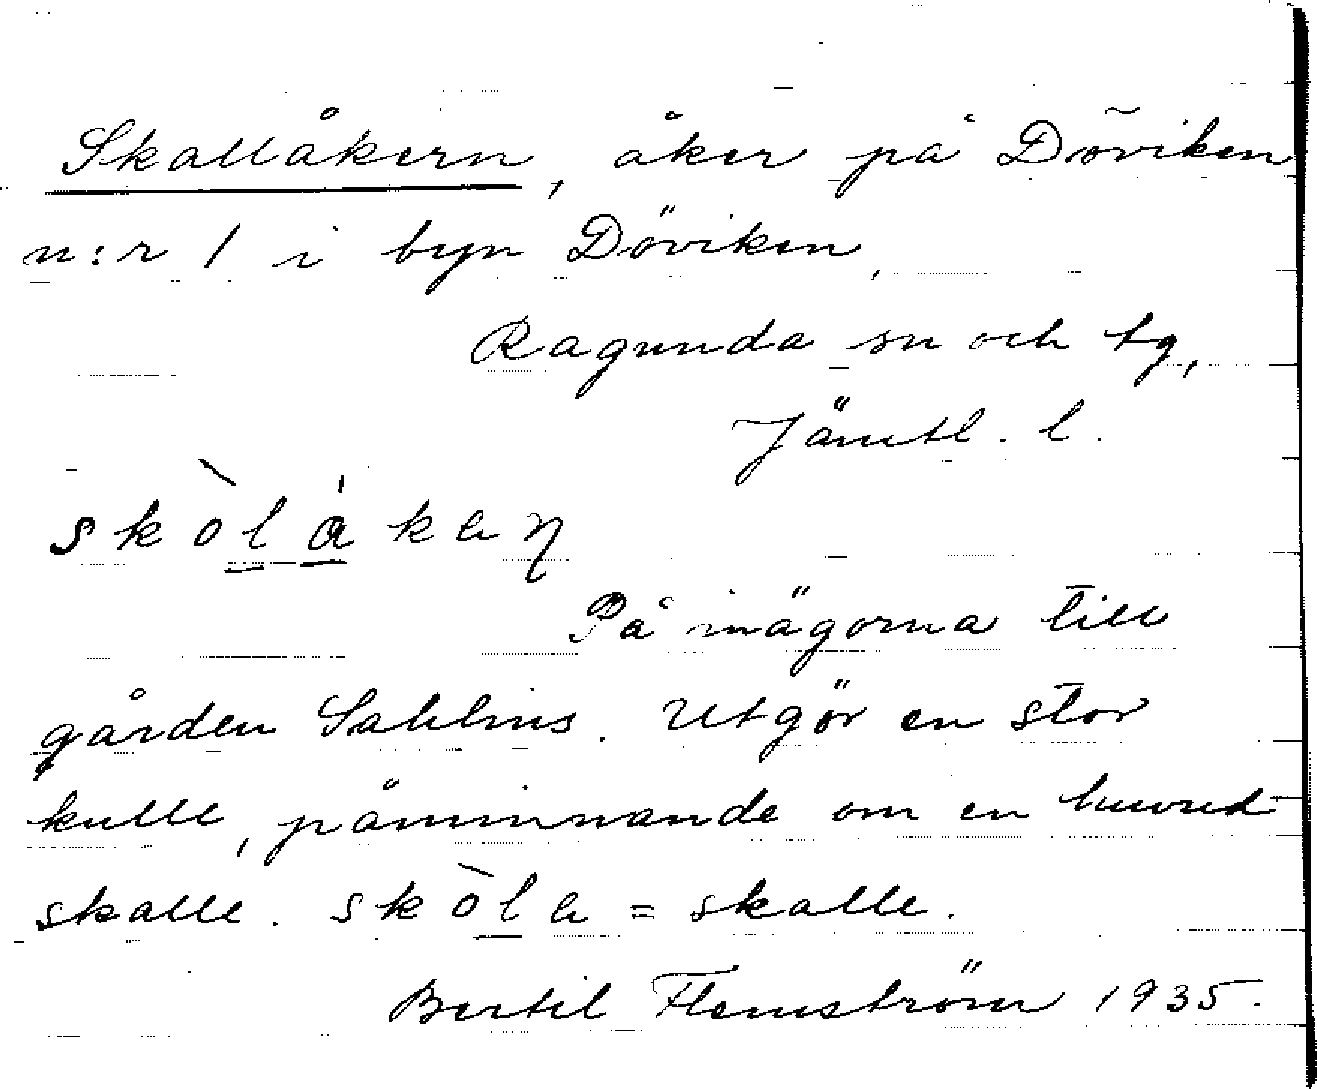 Skallåkern, åker på Döviken
n:r 1 i byn Döviken,
Ragunda sn och tg,
Jämtl. l.
skòlákaŋ
På inägorna till
gården Sahlins. Utgör en stor
kulle, påminnande om en huvud-
skalle. skòla = skalle.
Bertil Flemström 1935.